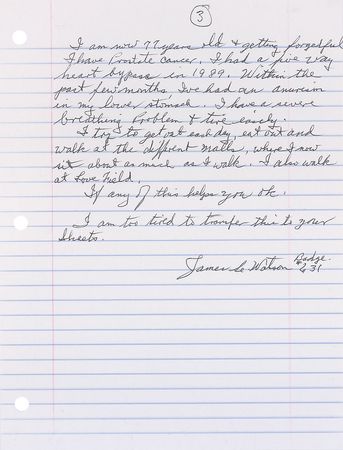 3
I am now 77 years old & getting forgedful
I have Prostate cancer. I had a five way
heart bypass in 1989. Within the
past few months Ive had an anurism
in my lower stomach. I have a severe
breathing Problem & tire easely.
I try to get out each day, eat out and
walk at the different Malls, where I now
sit about as much as I walk. I also walk
at Love Field.
If any of this helps you ok.
I am too tired to transfer this to your
Sheets.
Badge
James Watson #431